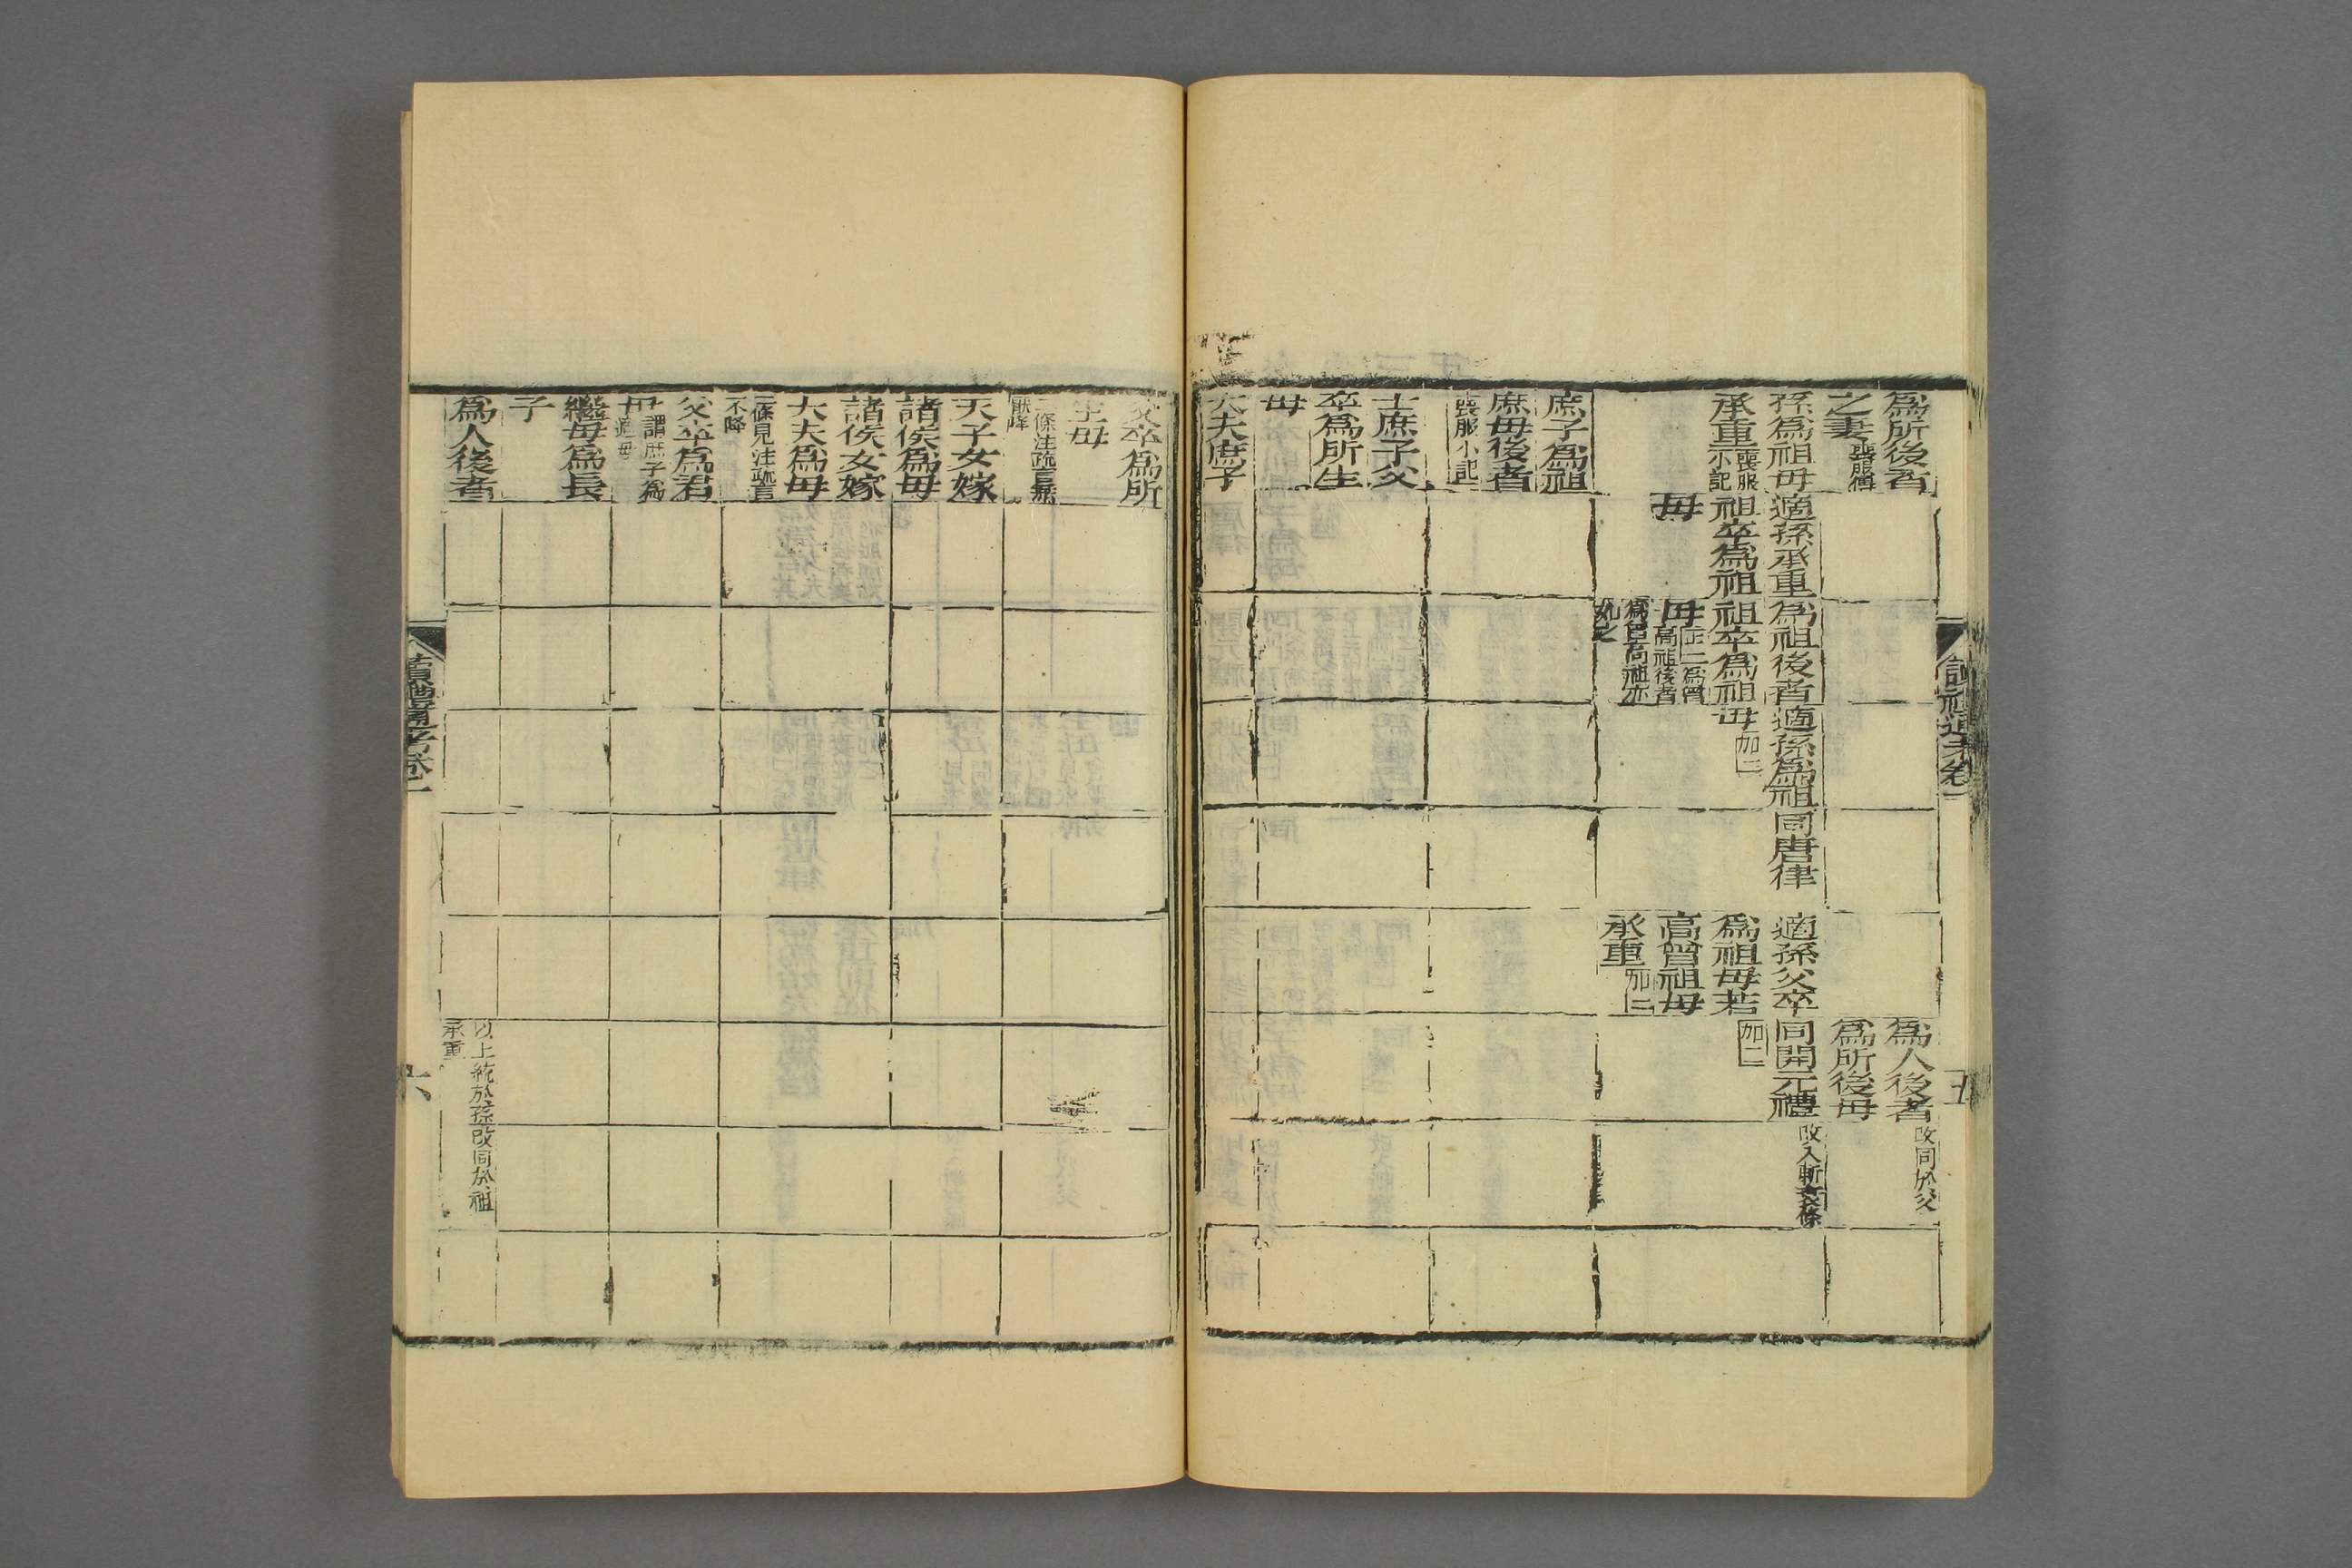 爲所後者
之妻喪服傳
爲人後者
爲所後母
改同於父
孫爲祖母
承重喪服
小記
適孫承重
祖卒爲祖
母
爲祖後者
祖卒爲祖
母正二爲曾
高祖後者
爲曾高祖亦
如之
適孫爲祖
母加三
同唐律
適孫父卒
爲祖母若
高曾祖母
承重加三
同開元禮
加二
改入斬衰條
庶子爲祖
庶母後者
喪服小記
士庶子父
卒爲所生
母
大夫庶子
五
父卒爲所
生母
二條注疏言無
厭降
天子女嫁
諸侯爲母
諸侯女嫁
大夫爲母
二條見注疏言
不降
父卒爲君
母謂庶子爲
適母
繼母爲長
子
爲人後者
以上統於孫改同於祖
承重
讀禮通考卷一
六